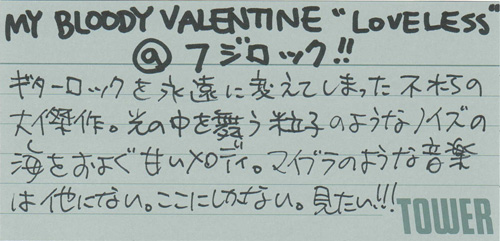 MY BLOODY VALENTINE "LOVELESS"
@ フジロック!!
ギターロックを永遠に変えてしまった不朽の
大傑作。光の中を舞う粒子のようなノイズの
海をおよぐ甘いメロディ。マイブラのような音楽
は他にない。ここにしかない。見たい!!!
TOWER